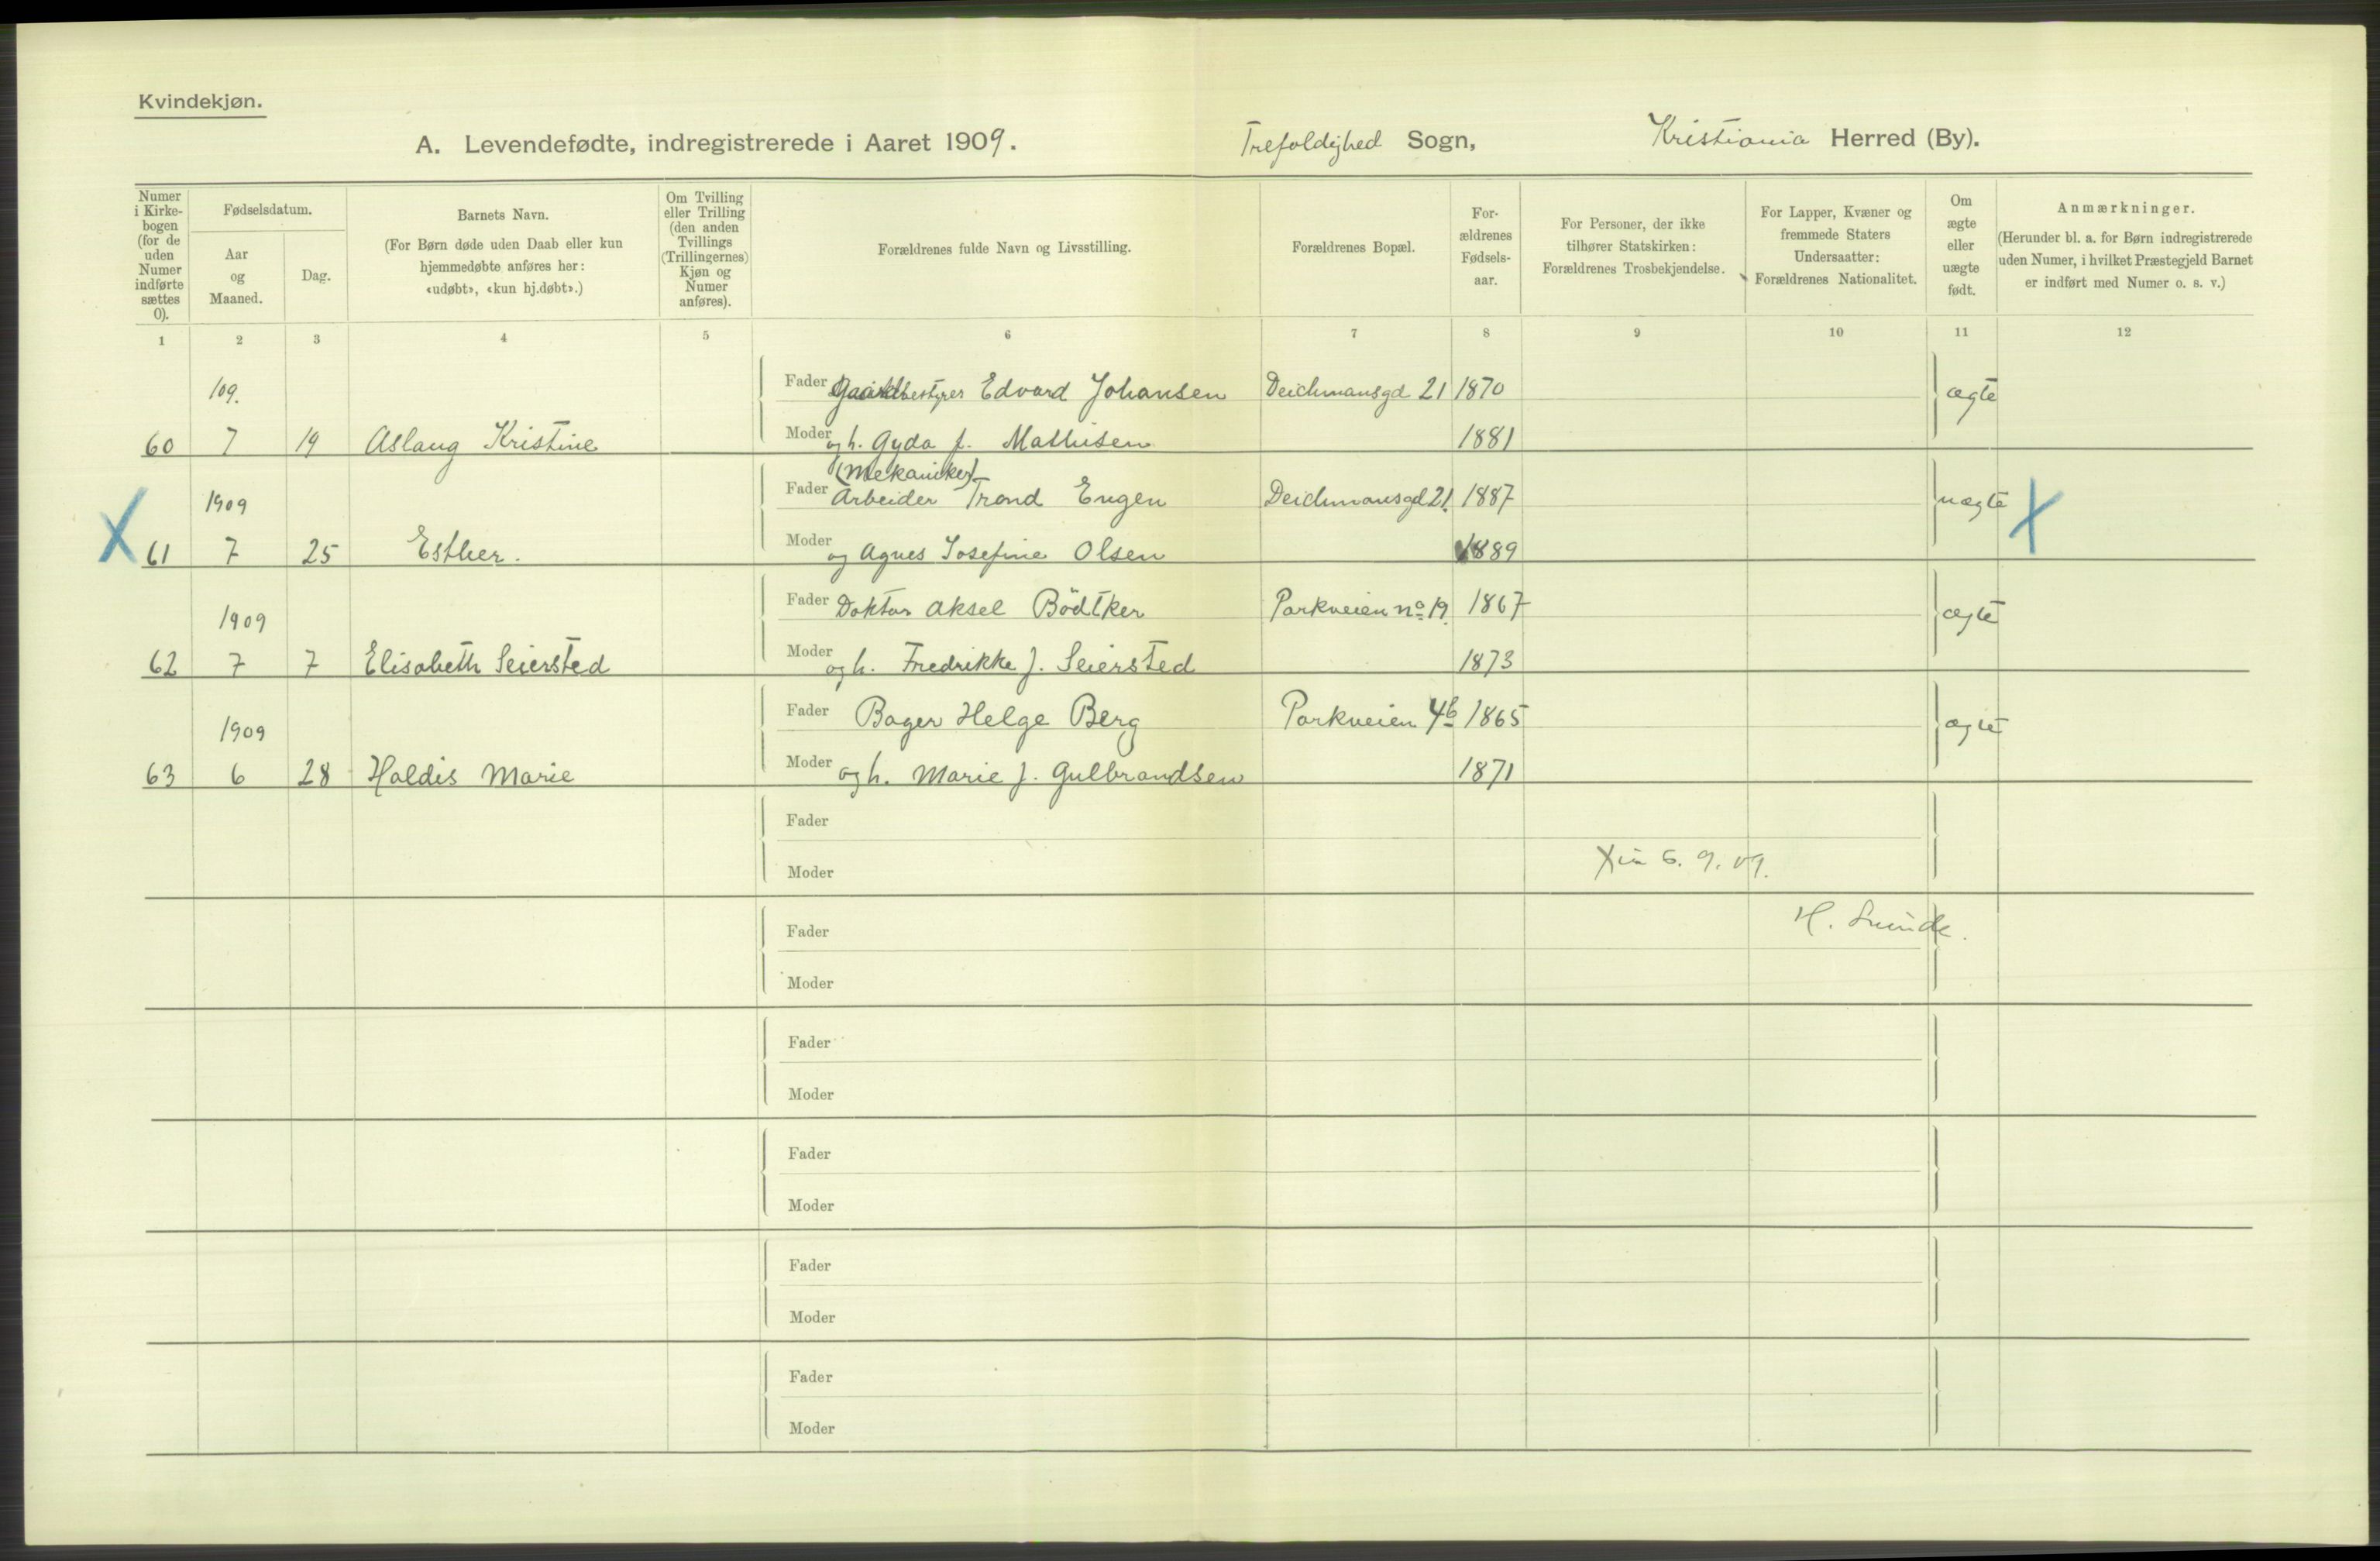 Kvindekjøn.
A. Levendefødte, indregistrerede i Aaret 1909. Trefoldighed Sogn, Kristiania Herred (By).
Numer i Kirke-bogen (for de uden Numer indførte sættes 0).
Fødselsdatum.
Aar og Maaned.
Dag.
Barnets Navn.
(For Børn døde uden Daab eller kun
hjemmedøbte anføres her:
«udøbt», «kun hj.døbt».)
Om Tvilling
eller Trilling
(den anden
Tvillings
(Trillingernes)
Kjøn og
Numer
anføres).
Forældrenes fulde Navn og Livsstilling.
Forældrenes Bopæl.
For-
ældrenes
Fødsels-
aar.
For Personer, der ikke
tilhører Statskirken:
Forældrenes Trosbekjendelse.
For Lapper, Kvæner og
fremmede Staters
Undersaatter:
Forældrenes Nationalitet.
Om
ægte
eller
uægte
født.
Anmærkninger.
(Herunder bl. a. for Børn indregistrerede
uden Numer, i hvilket Præstegjeld Barnet
er indført med Numer o. s. v.)
1 2 3 4 5 6 7 8 9 10 11 12
109. Fader Gaardbestyrer Edvard Johansen Deichmansgd 21 1870 ægte
60 7 19 Aslaug Kristine Moder og h. Gyda f. Mathisen 1881
(Mekaniker)
1909 Fader Arbeider Trond Engen Deichmansgd 21. 1887 uægte X
X 61 7 25 Esther. Moder og Agnes Josefine Olsen 1889
1909 Fader Doktor Aksel Bödtker Parkveien no 19. 1867 ægte
62 7 7 Elisabeth Seiersted Moder og h. Fredrikke f. Seiersted 1873
1909 Fader Bager Helge Berg Parkveien 4b 1865 ægte
63 6 28 Haldis Marie Moder og h. Marie f. Gulbrandsen 1871
Fader
Moder 6. 9. 09.
Fader H.
Moder
Fader
Moder
Fader
Moder
Fader
Moder
Fader
Moder